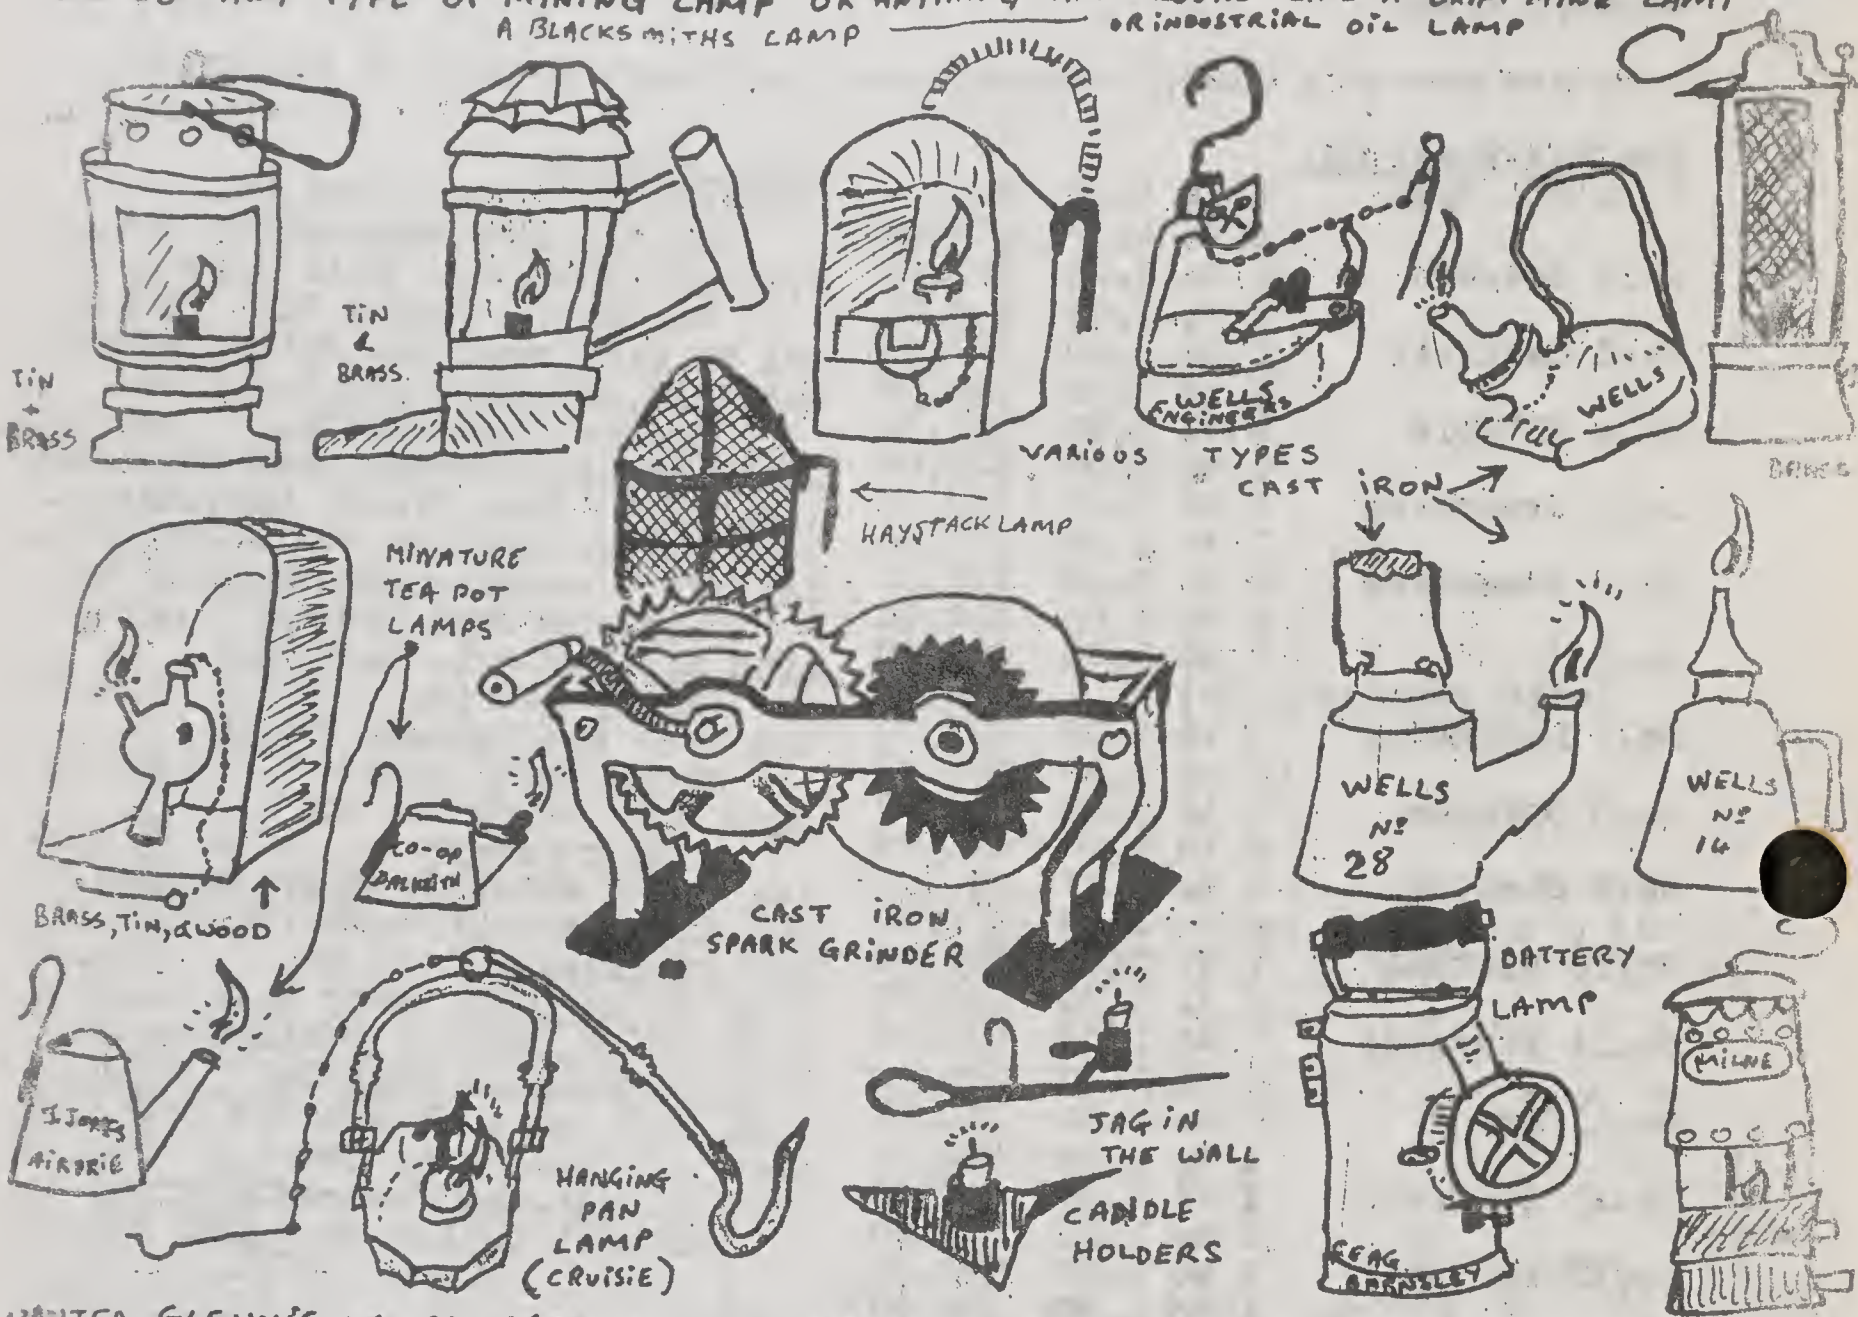 TYPE OF MINING LAMP OR
A BLACKSMITHS LAMP
OR INDUSTRIAL OIL LAMP
TIN
+
BRASS
TIN
&
BRASS.
WELLS
ENGINEERS
WELLS
VARIOUS TYPES
CAST IRON
BRASS
HAYSTACK LAMP
MINATURE
TEA POT
LAMPS
CO-OP
DALKEITH
BRASS, TIN, & WOOD
CAST IRON
SPARK GRINDER
WELLS
Nº
28
WELLS
Nº
14
BATTERY
LAMP
MILNE
AIRDRIE
HANGING
PAN
LAMP
(CRUISIE)
JAG IN
THE WALL
CANDLE
HOLDERS
CEAG
BARNSLEY